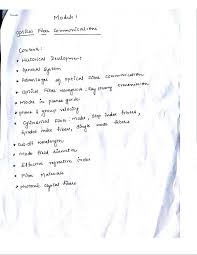 Module 1
Optical Fiber Communications
Contents:
• Historical Development
• General System
• Advantages of optical fiber communication
• Optical fiber waveguides: Ray theory transmission
• Modes in planar guide
• phase & group velocity
• Cylindrical fiber: modes, Step index fibers,
Graded index fibers, Single mode fibers
• Cut-off wavelength
• Mode field diameter
• Effective refractive index
• Fiber Materials
• photonic crystal fibers